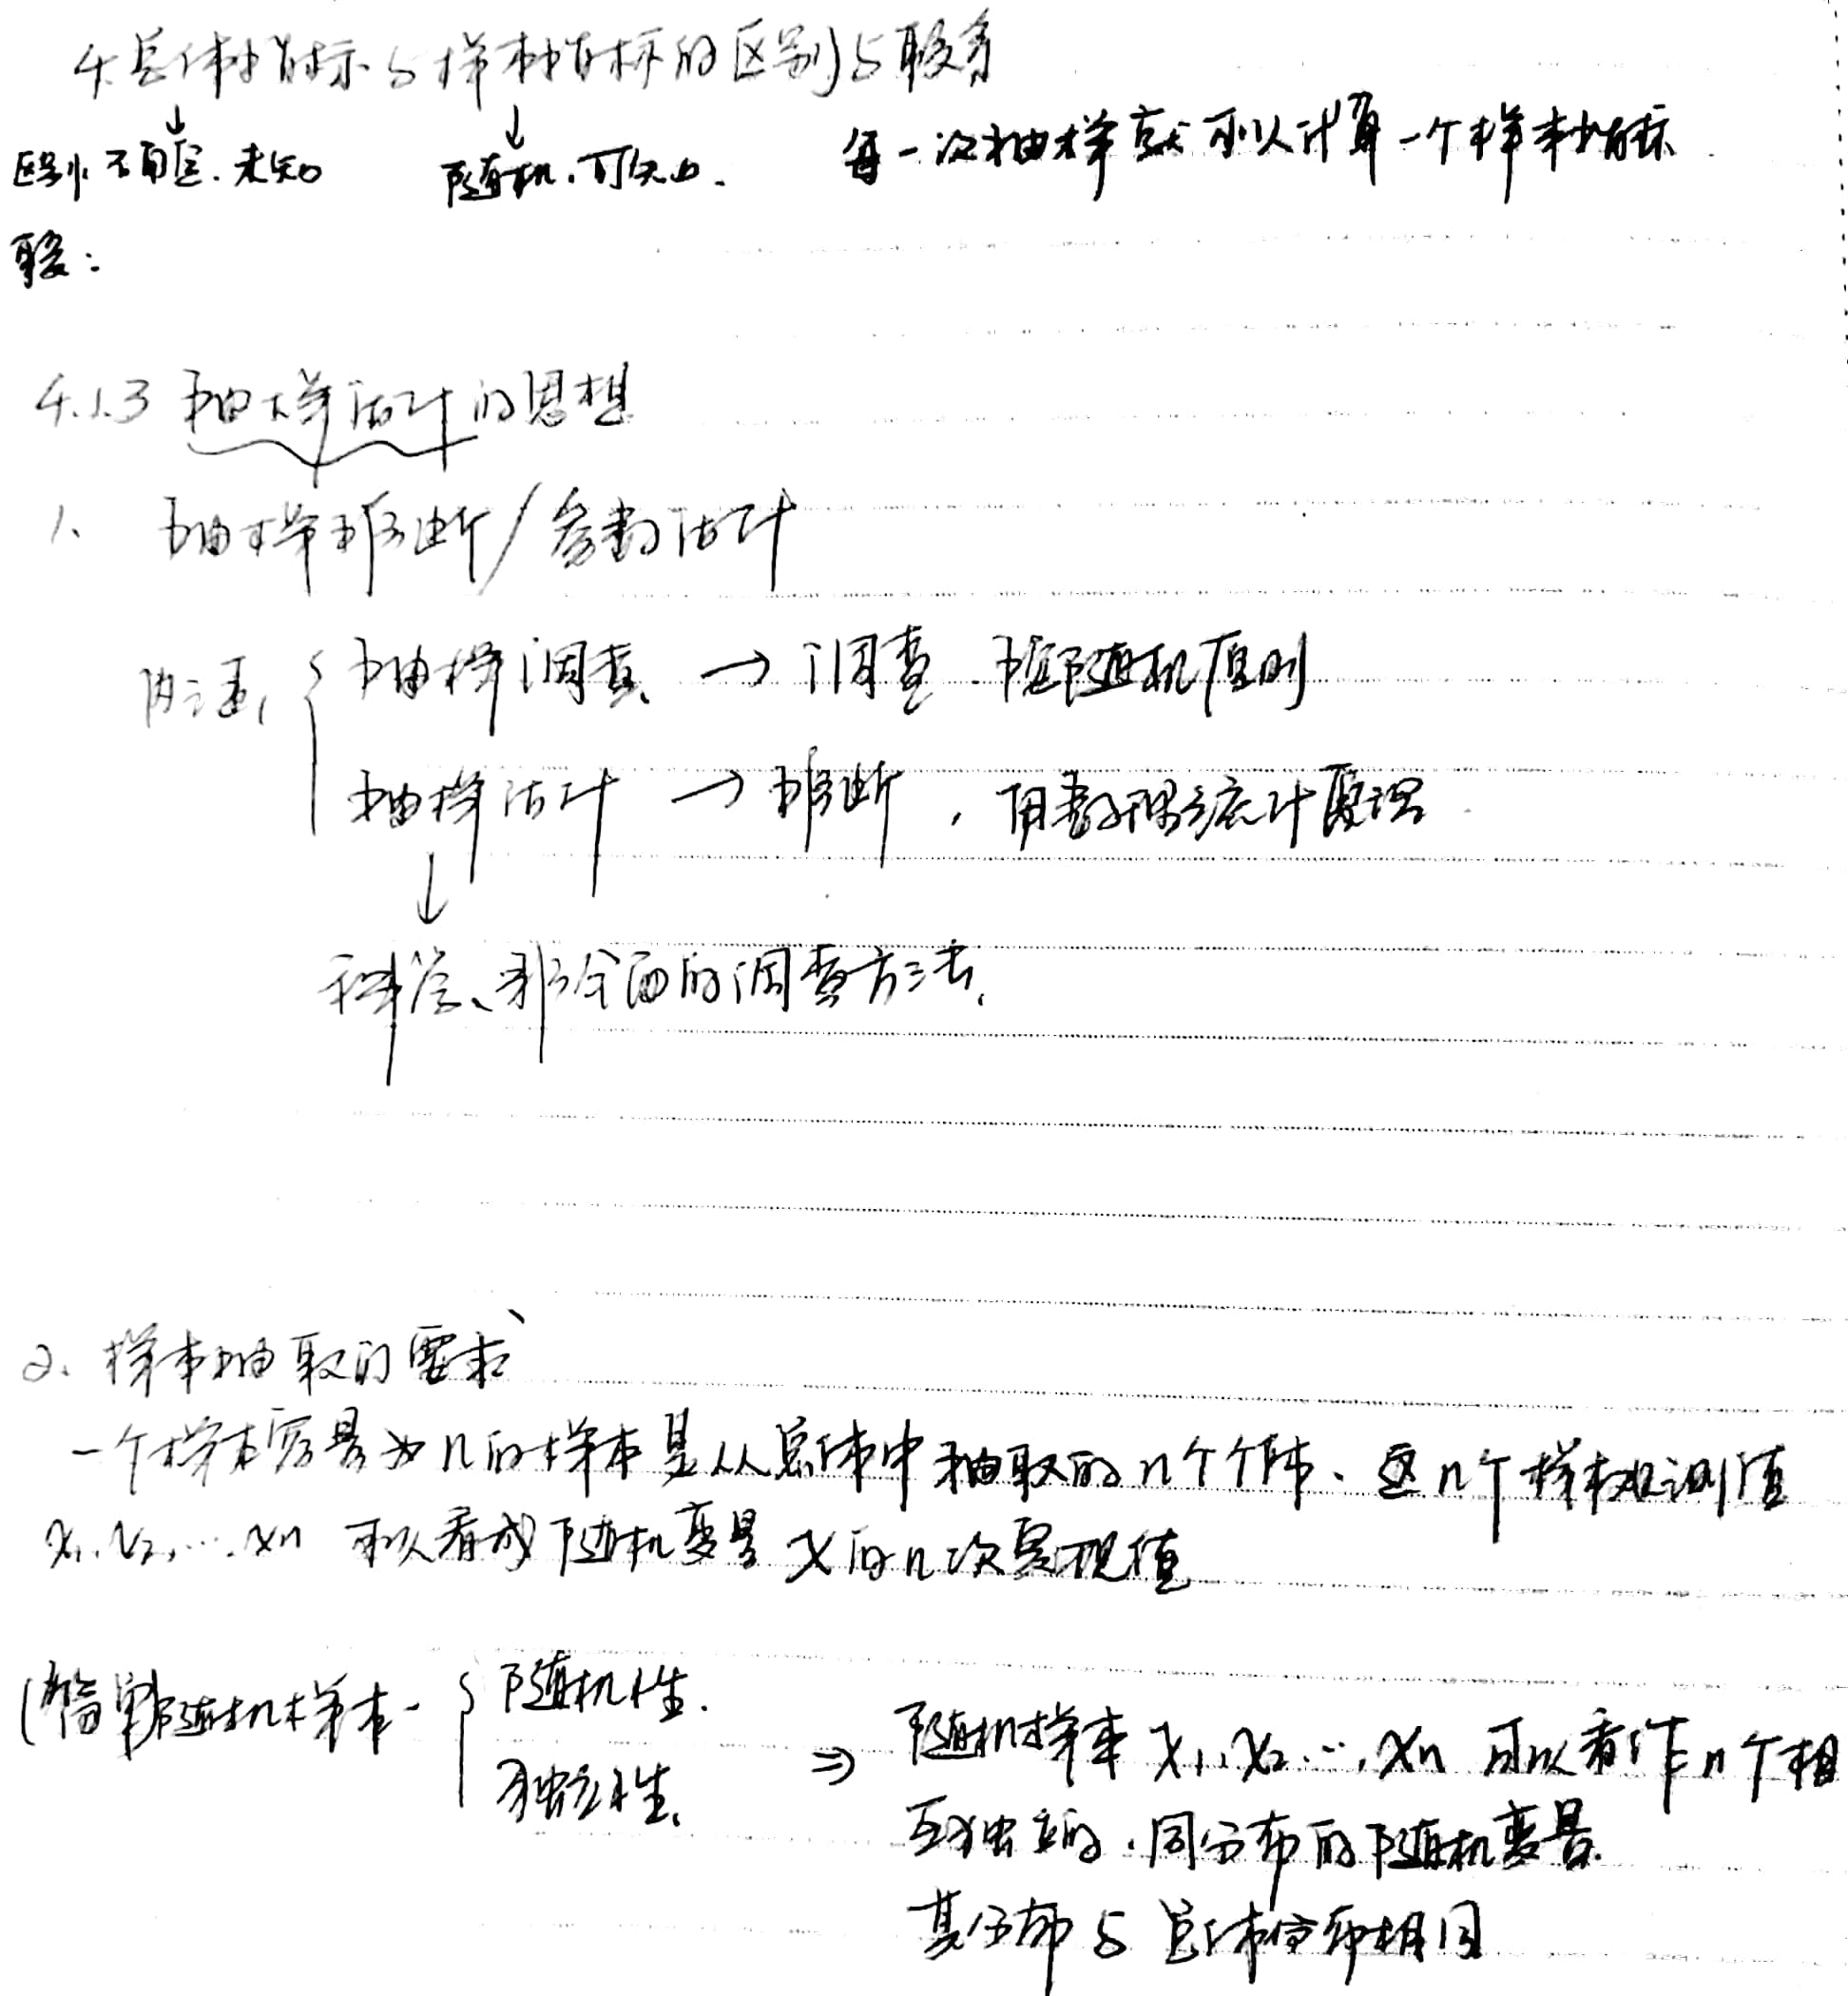 4.总体指标与样本指标的区别与联系
↓ ↓
区别:不确定.未知 随机.可知. 每一次抽样就可以计算一个样本指标
联:
4.1.3 抽样估计的思想
1. 抽样推断/参数估计
内涵: { 抽样调查 → 调查.随机原则
抽样估计 → 推断,用数理统计原理.
↓
科学、非全面的调查方法.
2. 样本抽取的要求
一个样本容量为n的样本是从总体中抽取的n个个体、这n个样本观测值
x₁.x₂,….xn 可以看成随机变量X的n次实现值
(简单随机样本- { 随机性.
独立性.
⇒ 随机样本 X₁,X₂…,Xn 可以看作n个相
互独立的.同分布的随机变量.
其分布与总体分布相同